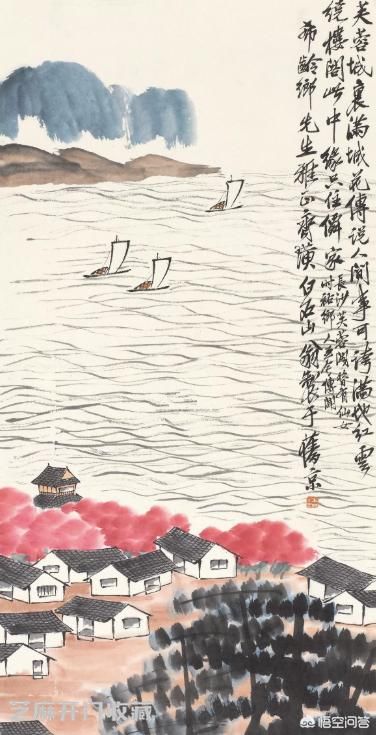 芙蓉城裏滿城花傳說人間事可誇滿地紅雲
繞樓閣此中緣只住僊家
長沙芙蓉城有仙女
鄉人至今傳聞
希齡鄉先生雅正齊璜白石山翁製于舊京
芝麻开门收藏
悟空问答